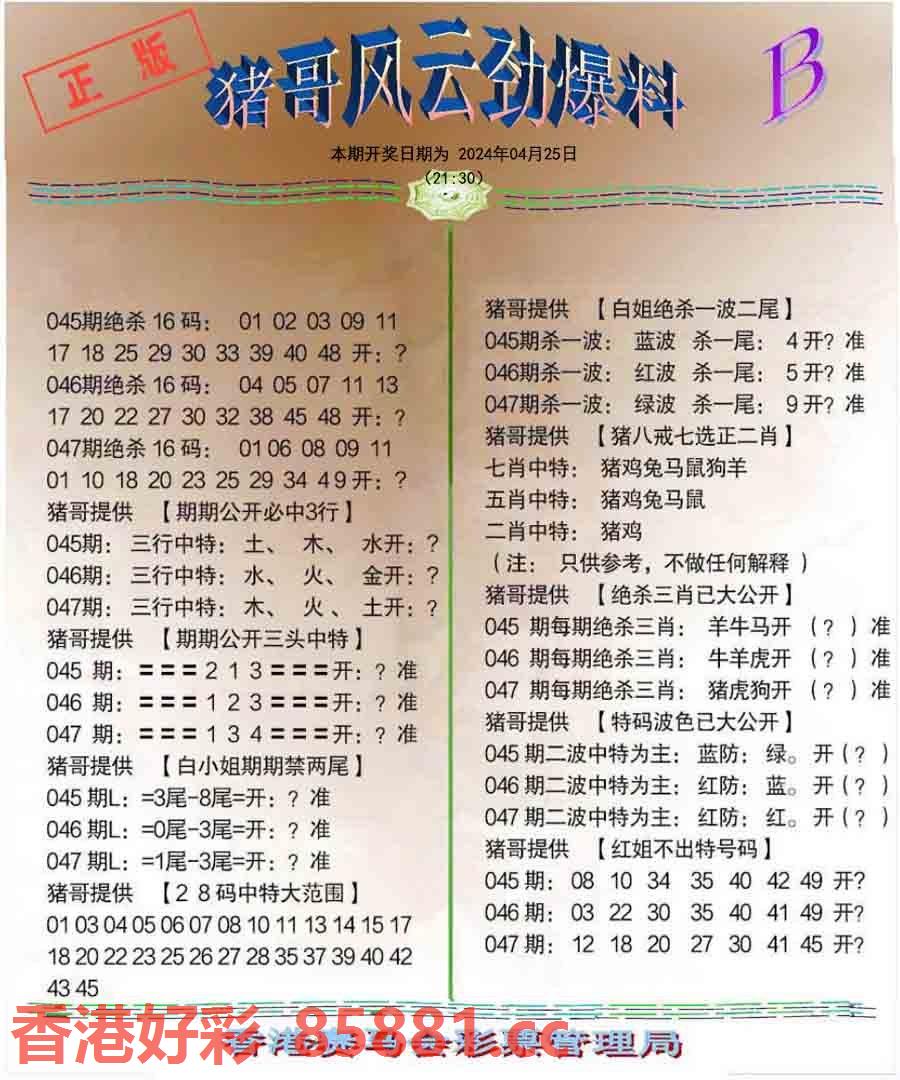 正版
猪哥风云劲爆料
B
本期开奖日期为 2024年04月25日
(21:30)
045期绝杀16码： 01 02 03 09 11
17 18 25 29 30 33 39 40 48 开：?
046期绝杀16码： 04 05 07 11 13
17 20 22 27 30 32 38 45 48 开：?
047期绝杀16码： 01 06 08 09 11
01 10 18 20 23 25 29 34 49 开：?
猪哥提供 【期期公开必中3行】
045期： 三行中特： 土、 木、 水开：?
046期： 三行中特： 水、 火、 金开：?
047期： 三行中特： 木、 火、 土开：?
猪哥提供 【期期公开三头中特】
045 期：===213===开：? 准
046 期：===123===开：? 准
047 期：===134===开：? 准
猪哥提供 【白小姐期期禁两尾】
045期L：=3尾-8尾=开：? 准
046期L：=0尾-3尾=开：? 准
047期L：=1尾-3尾=开：? 准
猪哥提供 【28码中特大范围】
01 03 04 05 06 07 08 10 11 13 14 15 17
18 20 22 23 25 26 27 28 35 37 39 40 42
43 45
猪哥提供 【白姐绝杀一波二尾】
045期杀一波： 蓝波 杀一尾： 4开? 准
046期杀一波： 红波 杀一尾： 5开? 准
047期杀一波： 绿波 杀一尾： 9开? 准
猪哥提供 【猪八戒七选正二肖】
七肖中特： 猪鸡兔马鼠狗羊
五肖中特： 猪鸡兔马鼠
二肖中特： 猪鸡
(注： 只供参考，不做任何解释)
猪哥提供 【绝杀三肖已大公开】
045 期每期绝杀三肖： 羊牛马开 (?)准
046 期每期绝杀三肖： 牛羊虎开 (?)准
047 期每期绝杀三肖： 猪虎狗开 (?)准
猪哥提供 【特码波色已大公开】
045期二波中特为主：蓝防：绿。开(?)
046期二波中特为主：红防：蓝。开(?)
047期二波中特为主：红防：红。开(?)
猪哥提供 【红姐不出特号码】
045期：08 10 34 35 40 42 49 开?
046期：03 22 30 35 40 41 49 开?
047期：12 18 20 27 30 41 45 开?
香港好彩 85881.cc
香港赛马会彩票管理局